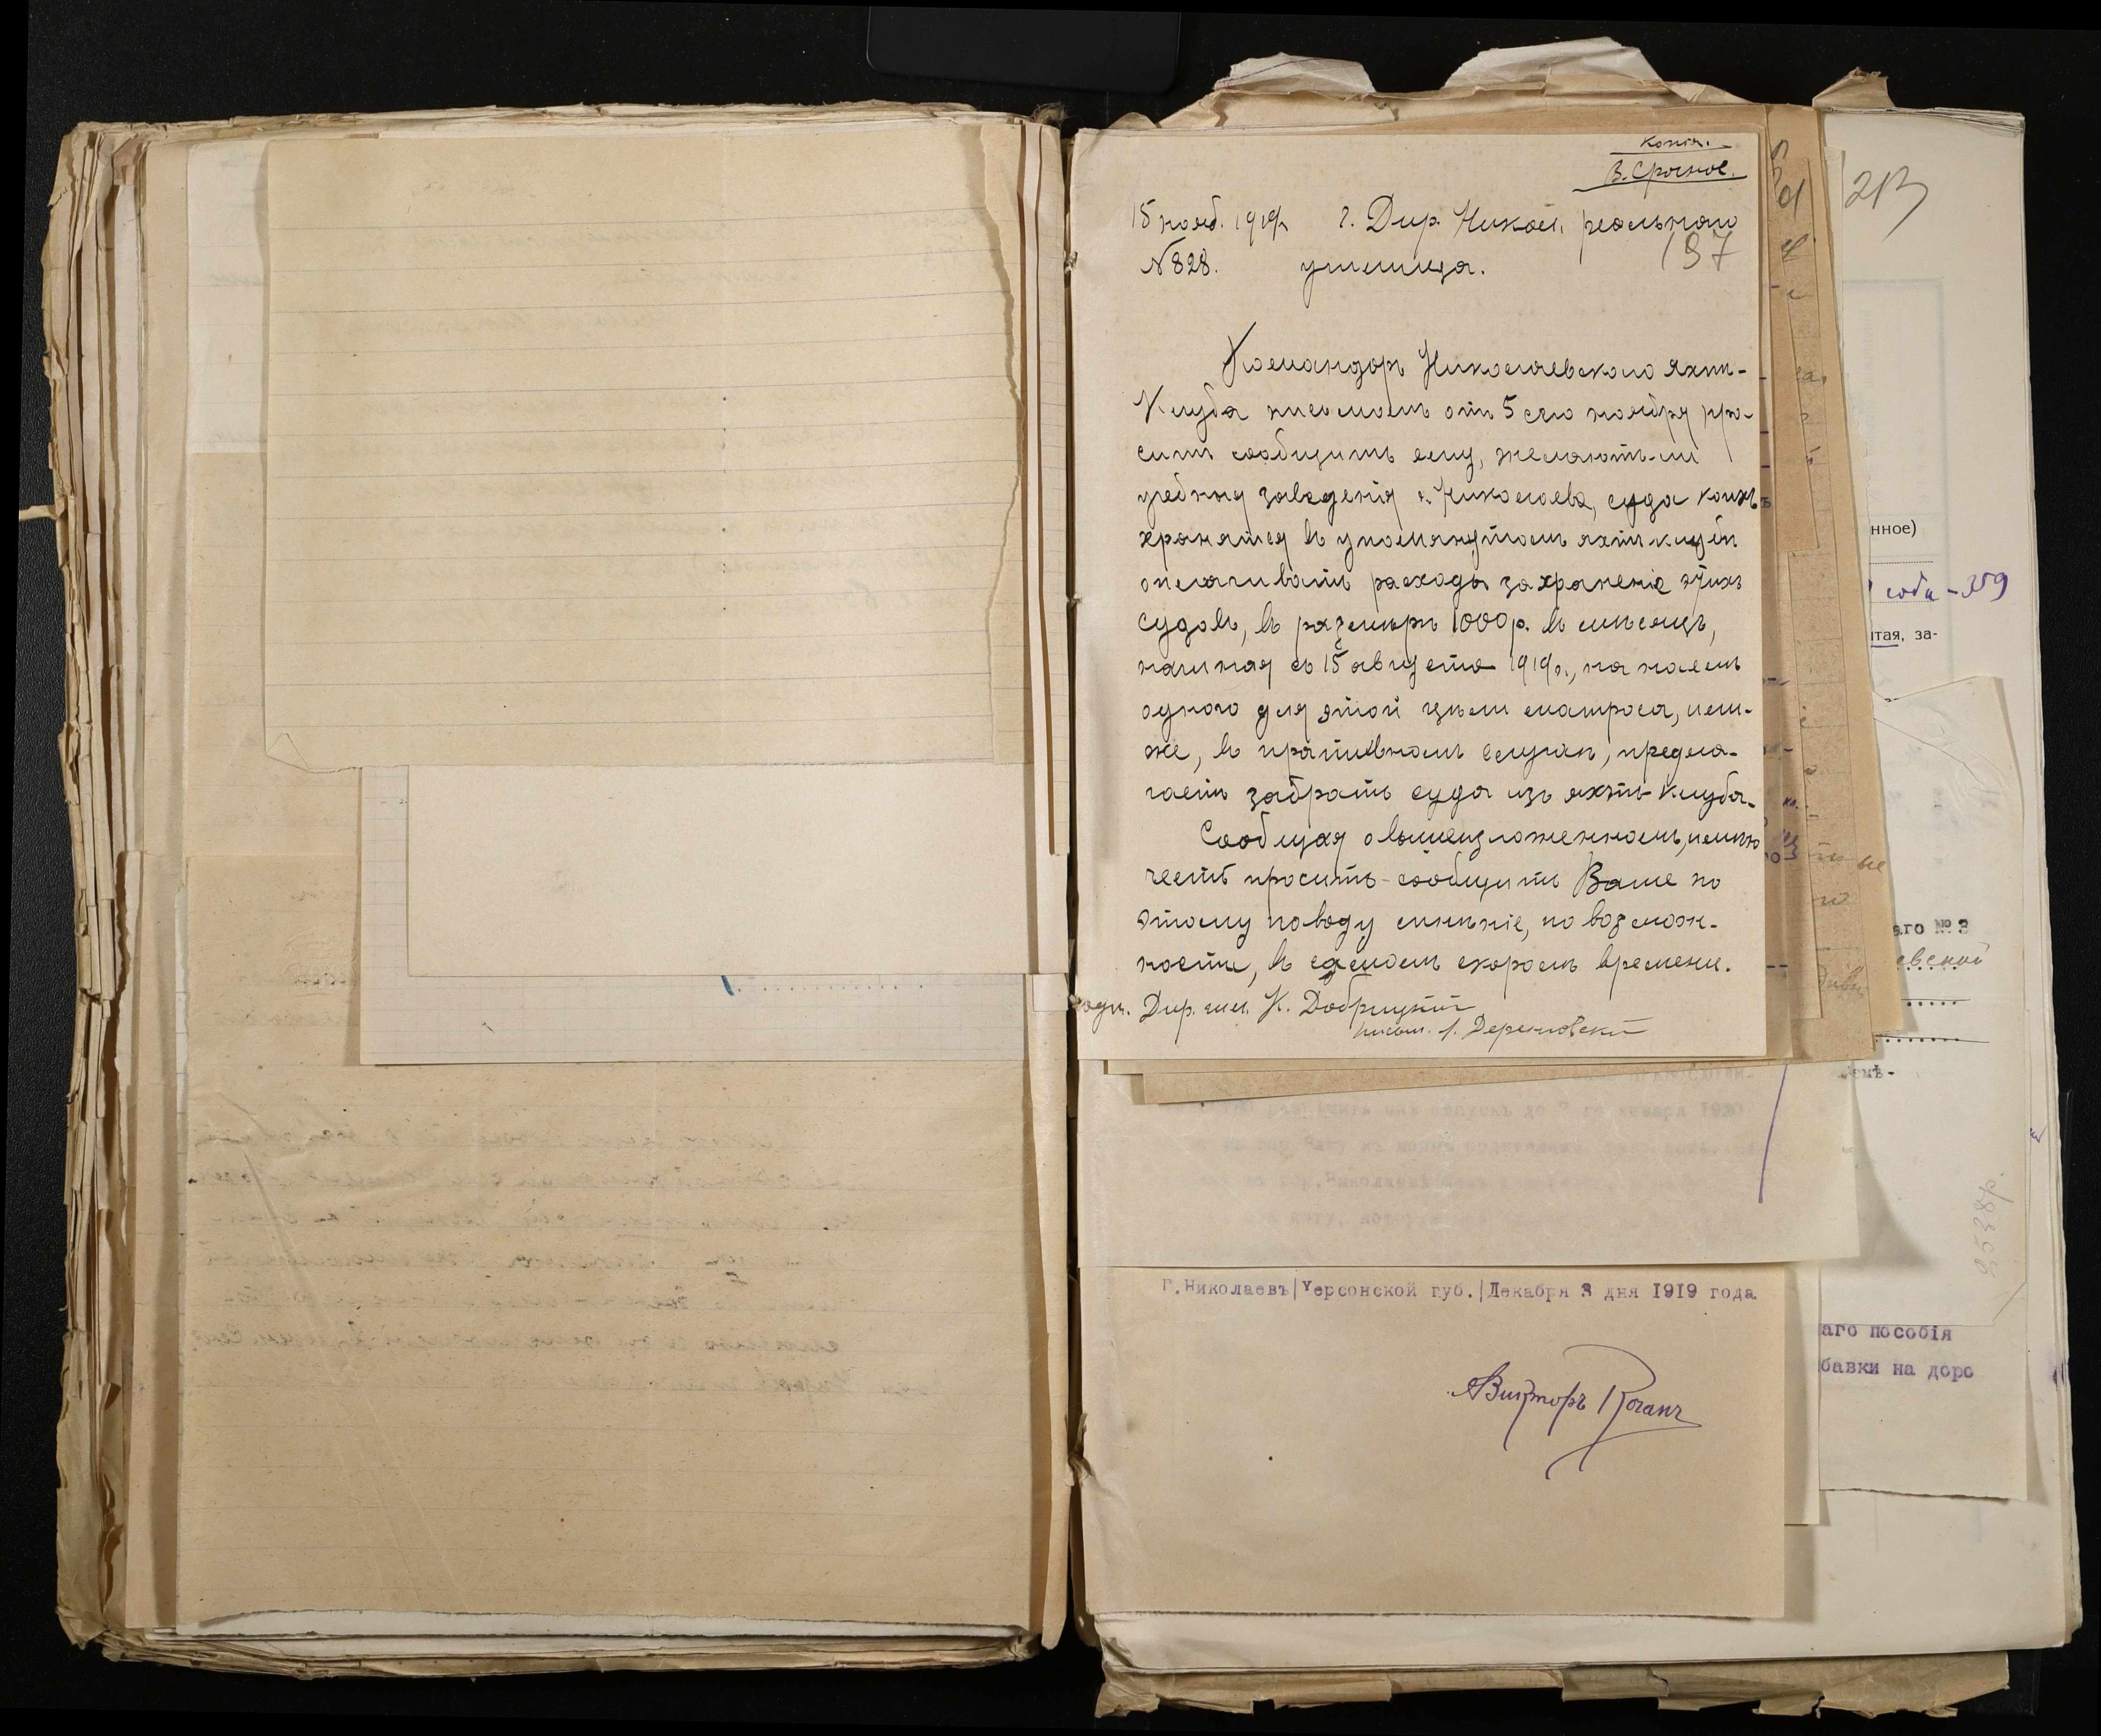 Копія.
В. Срочное.
213
15 нояб. 1919 г. Г. Дир. Никол. реальнаго
№ 828. училища.
197
Командоръ Николаевскаго яхтъ-
Клуба письмомъ отъ 5 сего ноября про-
ситъ сообщить ему, желаютъ-ли
учебныя заведенія г. Николаева, суда коихъ
хранятся въ упомянутомъ яхтъ-клубѣ
оплачивать расходы за храненіе этихъ
судовъ, въ размѣрѣ 1000 р. въ мѣсяцъ,
начиная съ 15 августа 1919 г., на наемъ
одного для этой цѣли матроса, или-
же, въ противномъ случаѣ, предла-
гаетъ забрать суда изъ яхтъ-клуба.
Сообщая о вышеизложенномъ, имѣю
честь просить сообщить Ваше по
этому поводу мнѣніе, по возмож-
ности, въ самомъ скоромъ времени.
Дир. гим. К. Добрицкій
письм.
нное)
года - 359
тая, за-
аго № 3
евской
Г. Николаевъ|Херсонской губ.|Декабря 3 дня 1919 года
Викторъ Коганъ
аго пособія
бавки на доро